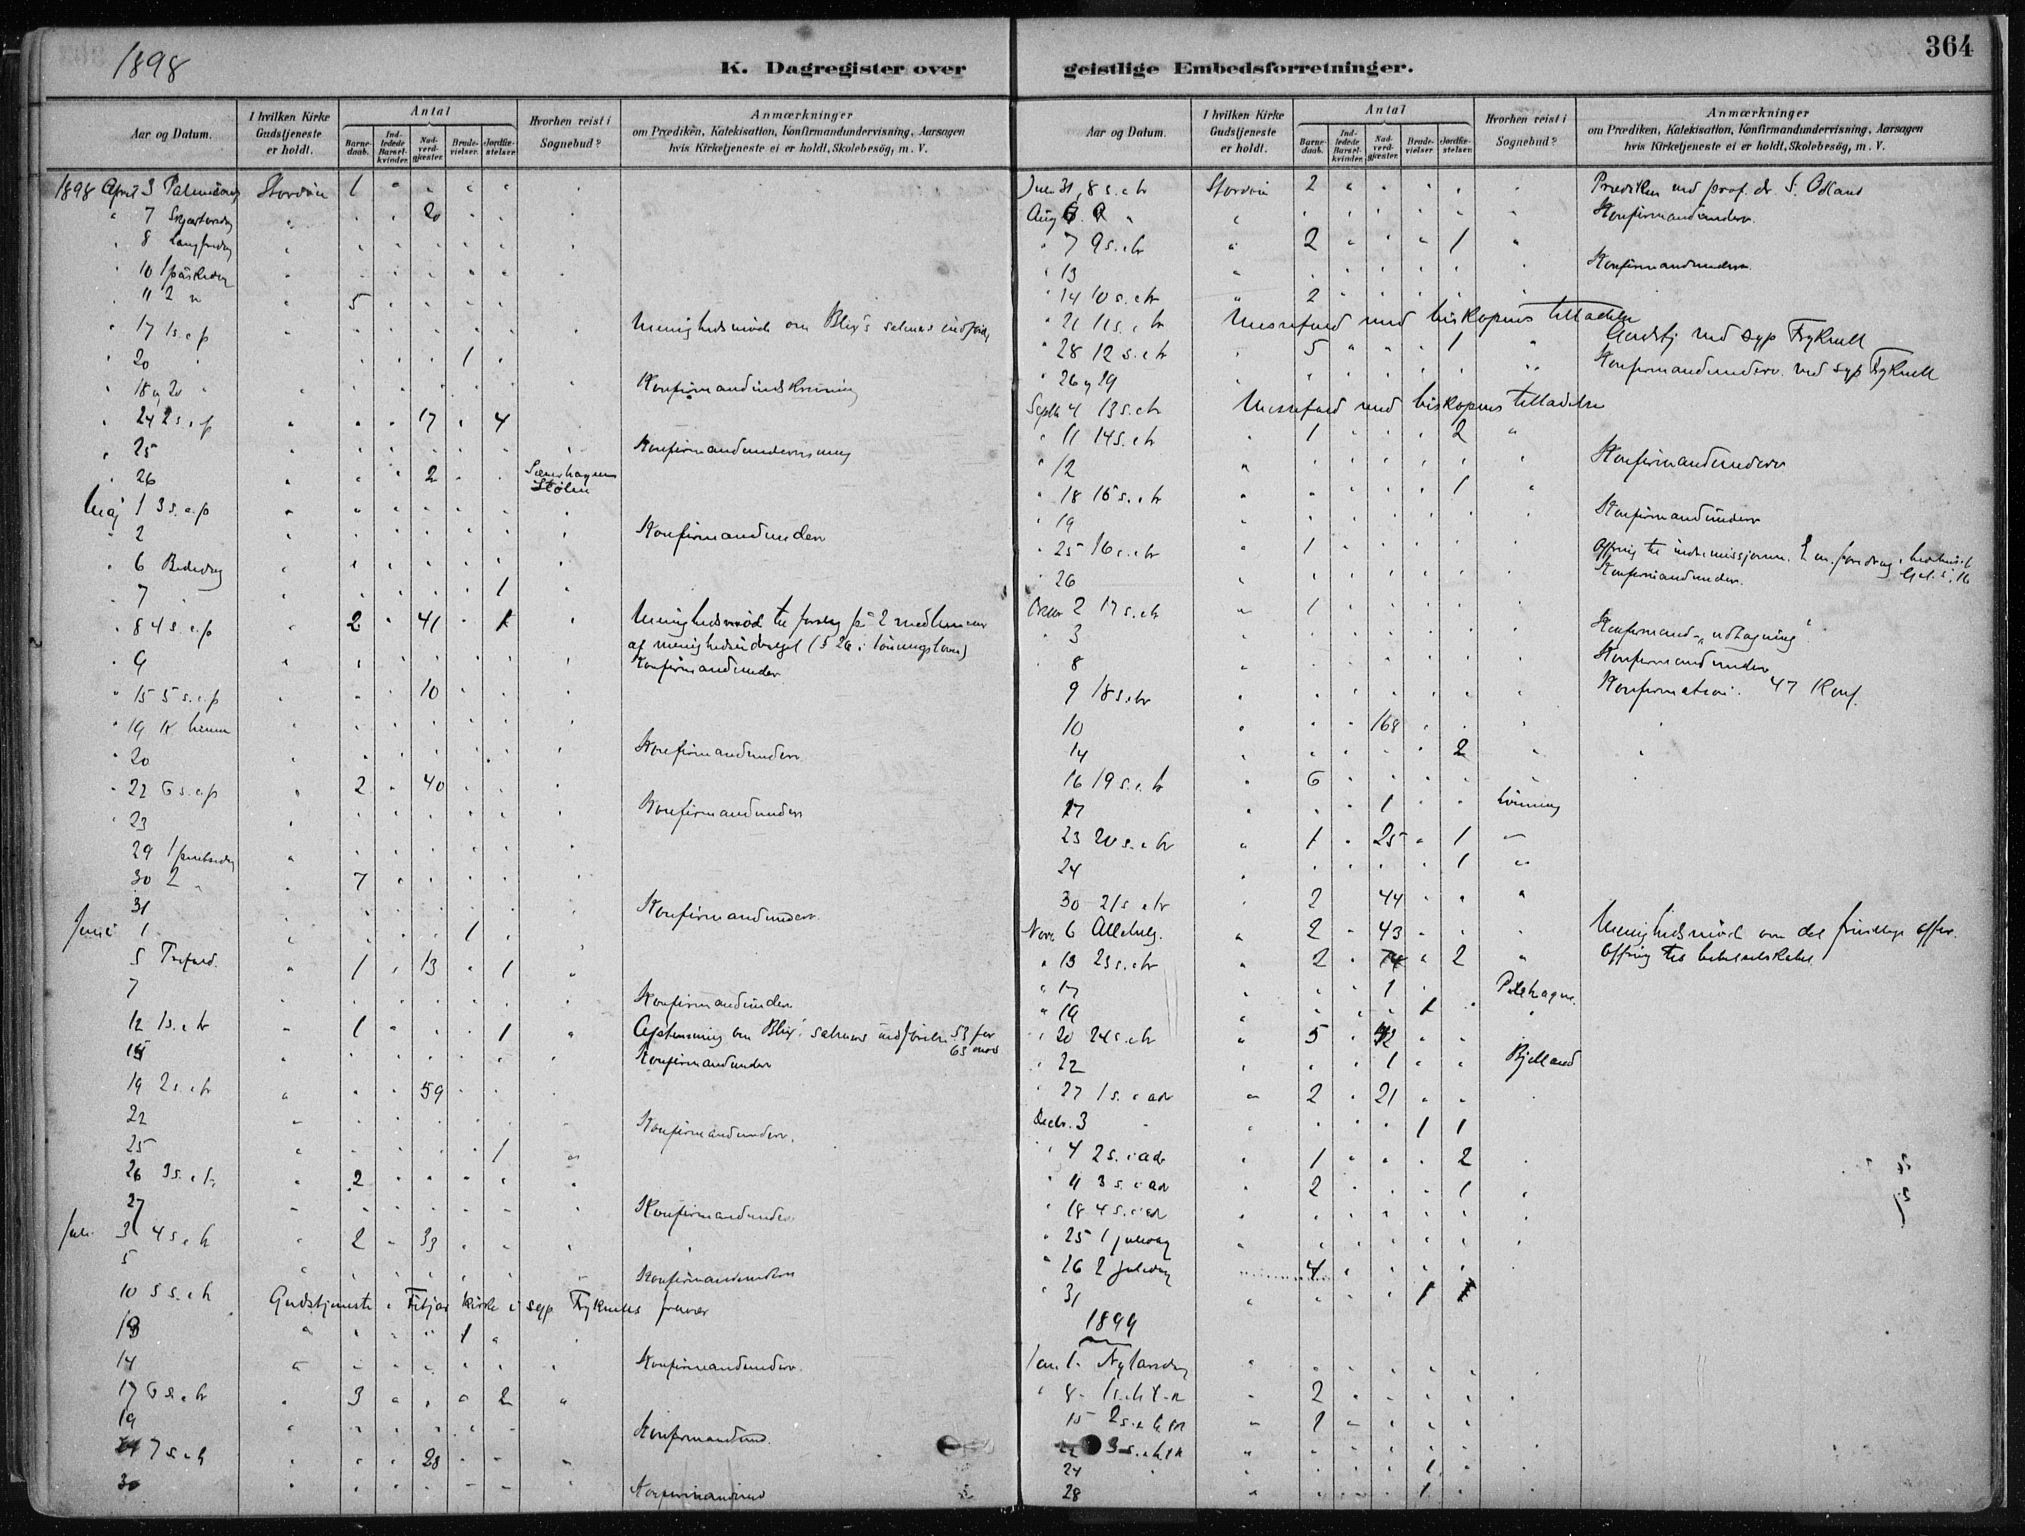 1898
K. Dagregister over
Aar og Datum. I hvilken Kirke Gudstjeneste er holdt. Antal Barnedaab. Indledede Barselkvinder. Nadverdgjester. Brudevielser. Jordfæstelser. Hvorhen reist i Sognebud? Anmærkninger om Prædiken, Katekisation, Konfirmandundervisning, Aarsagen hvis Kirketjeneste ei er holdt, Skolebesøg, m. V.
1898 April 3 Palmesøndag Stordøen 1 " " " "
" 7 Skjærtorsdag " " " 20 " "
" 8 Langfredag
" 10 1 påskedag
" 11 2 " " 5
" 17 1 s. e. p Menighedsmøde om Blix's salmers indførelse
" 20 " 1
" 18 og 20 Konfirmandindskrivning
" 24 2 s. e. p " 17 " 4
" 25 Konfirmandundervisning
" 26 2
Maj 1 3 s. e. p
" 2 Konfirmandunderv
" 6 Bededag
" 7 1
" 8 4 s. e. p 2 " 41 " 1 Menighedsmøde til forslag på 2 medlemmer
af menighedsudvalget
" 9 Konfirmandunderv
" 15 5 s. e. p 10
" 19 Kr himm
" 20 Konfirmandunderv
" 22 6 s. e. p 2 " 40
" 23 Konfirmandunderv
29 1 pintsedag
30 2 " 7
31 Konfirmandunderv
Juni 1 1
5 Trefold. 1 " 13 " 1
7 Konfirmandunderv
12 1 s. e. tr 1 " " " 1 Afstemning om Blix' salmers indførelse 53 for
63 mod
Konfirmandunderv
19 2 s. e. tr 59
22 Konfirmandunderv.
25 1
26 3 s. e. tr 2
27 Konfirmandunderv
Juli 3 4 s. e. tr 2 " 33
5 Konfirmandunderv
10 5 s. e. tr Gudstjeneste i Fitjar kirke i sgp. Fryknells fravær
1
14 Konfirmandunderv
17 6 s. e. tr 3 " " " 2
19 Konfirmandund.
7 s. e. tr 28
30 Konfirmandund
geistlige Embedsforretninger.
364
Aar og Datum. I hvilken Kirke Gudstjeneste er holdt. Antal Barnedaab. Indledede Barselkvinder. Nadverdgjester. Brudevielser. Jordfæstelser. Hvorhen reist i Sognebud? Anmærkninger om Prædiken, Katekisation, Konfirmandundervisning, Aarsagen hvis Kirketjeneste ei er holdt, Skolebesøg, m. V.
Juli 31, 8 s. e. tr Stordøen 2 Prædiken ved prof. dr. S. Odland
Aug 6 Konfirmandunderv.
" 7 9 s. e. tr 2 " " " 1
" 13 Konfirmandunderv
" 14 10 s. e. tr 2
" 21 11 s. e. tr Messefald med biskopens tilladelse
" 28 12 s. e. tr 5 " " " 1 Gudstj ved sgp Fryknell
" 26 og 29 Konfirmandunderv. ved sgp Fryknell
Septb 4 13 s. e. tr Messefald med biskopens tilladelse
" 11 14 s. e. tr 1 " " " 2
" 12 Konfirmandunderv
" 18 15 s. e. tr 1
" 19 Konfirmandunderv
" 25 16 s. e. tr 1 Ofring til indremissjonen.
" 26 Konfirmandunderv.
Oktbr 2 17 s. e. tr 1
" 3 Konfirmand-"udtagning".
" 8 Konfirmandunderv
9 18 s. e. tr Konfirmation. 47 Konf.
10 168
14 2
16 19 s. e. tr 6
17 1 Lønning
23 20 s. e. tr 1 " 25 " 1
24 1
30 21 s. e. tr 2 " 44
Novr. 6 Allehelg. 2 " 43 Menighedsmøde om det frivillige offer.
" 13 23 s. e. tr 2 " 74 " 2 Ofring til bibelselskabet
" 17 1
" 19 1
" 20 24 s. e. tr 5
" 22 1 Bjelland
" 27 1 s. i adv 2 " 21
Decbr. 3 1 1
" 4 2 s. i adv 1 " " " 2
" 11 3 s. i adv 2 " " " 1
" 18 4 s. i adv
" 25 1 juledag
" 26 2 juledag 4
" 31 1 1
1899
Jan 1. Nytårsdag
" 8 1 s. e. h. 3 k 2
15 2 s. e. h. 3 k 1
22 3 s. e. h. 3 k
24 1
28 1